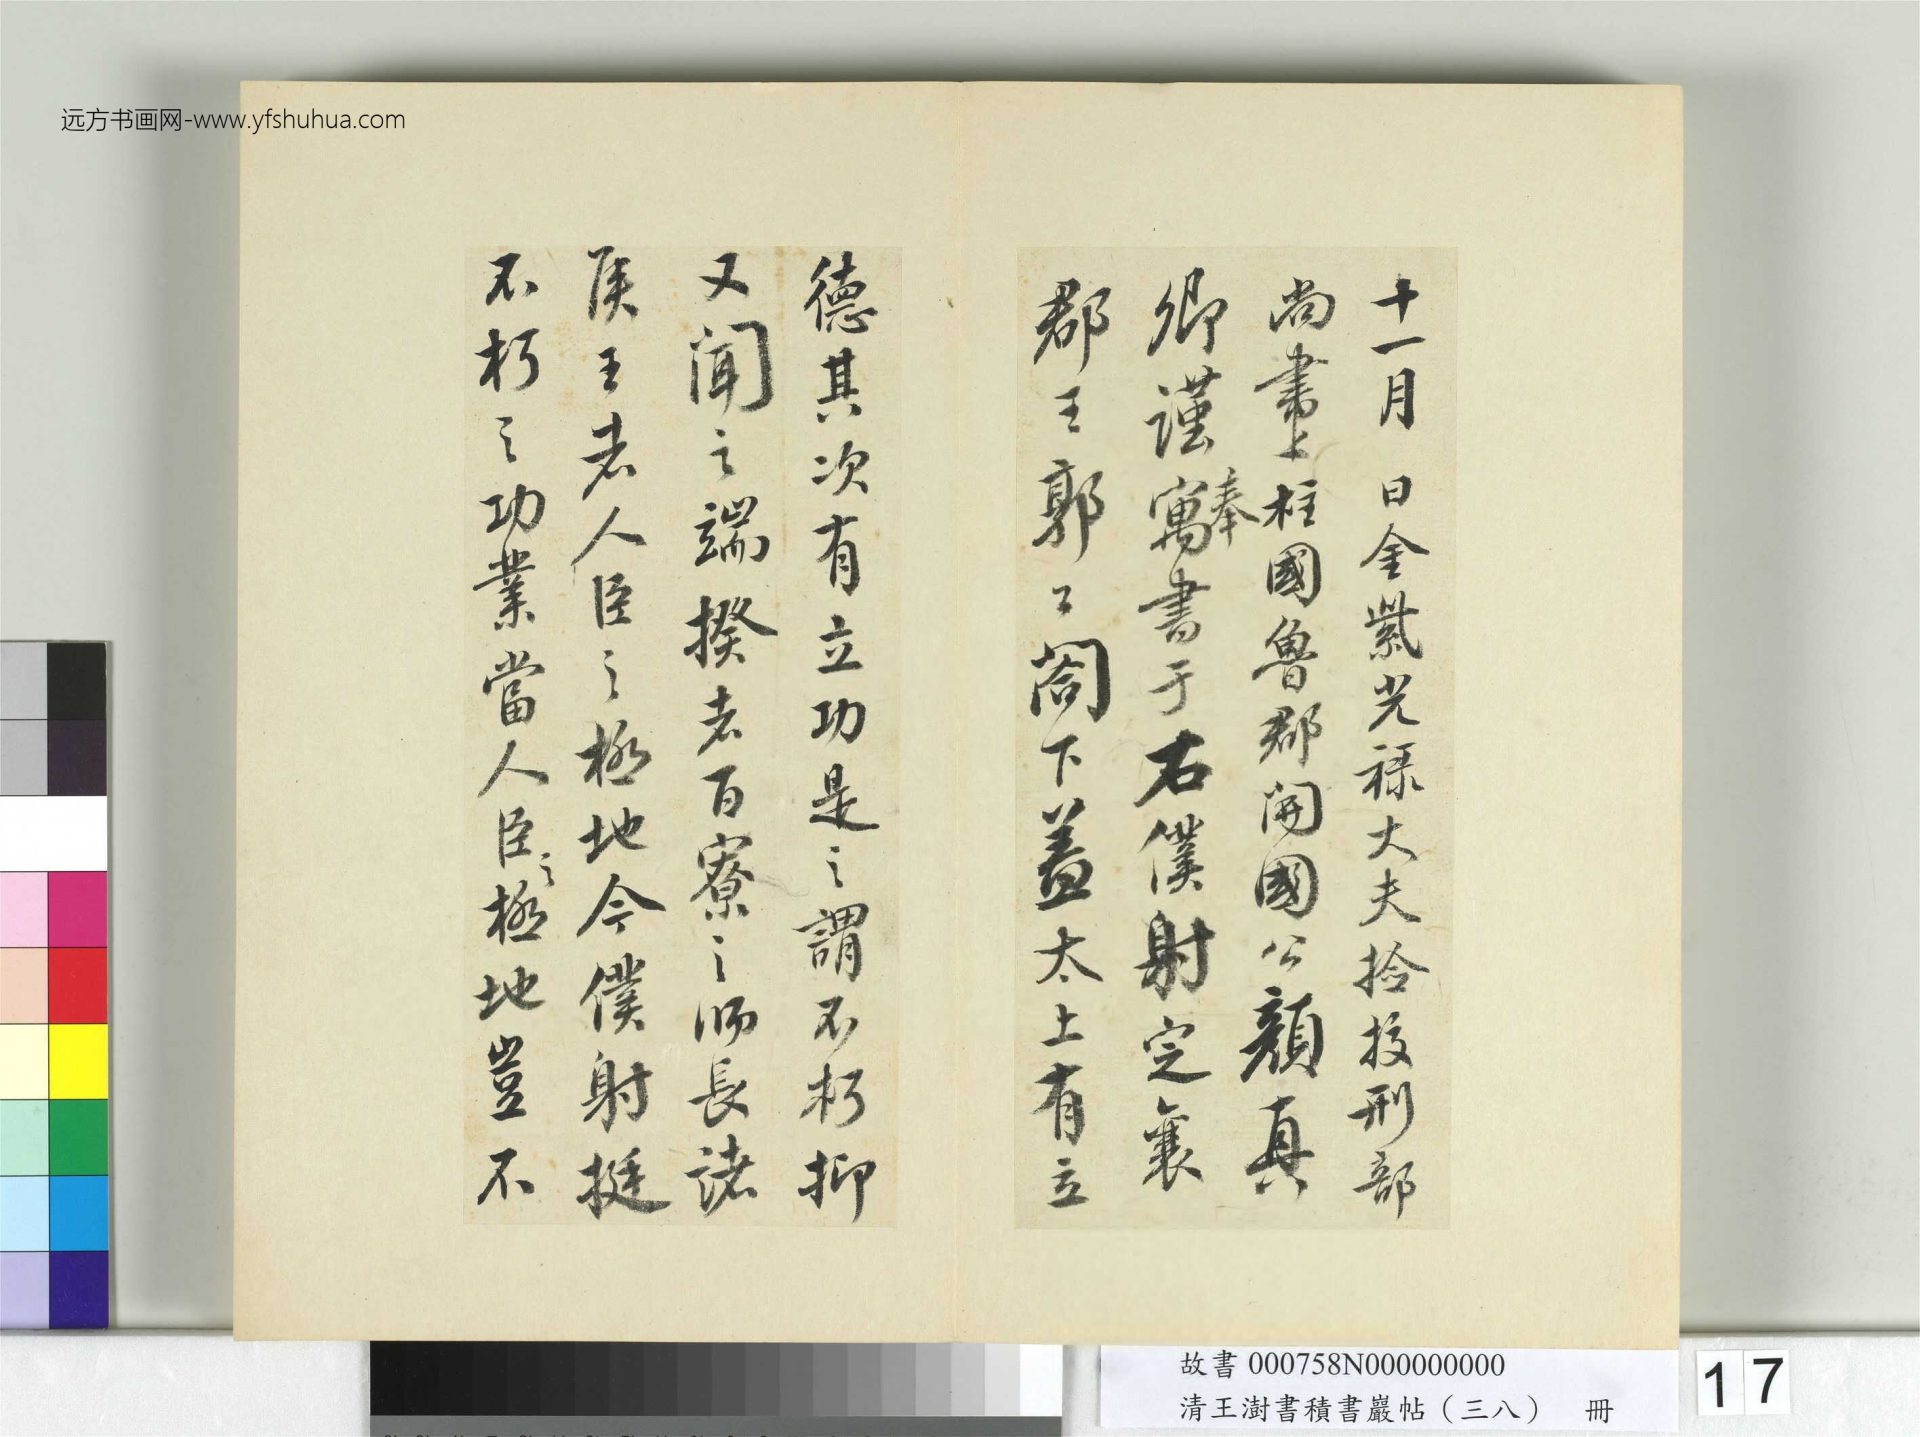 远方书画网-www.yfshuhua.com
十一月 日金紫光祿大夫撿挍刑部
尚書上柱國魯郡開國公顏真
卿謹奉寓書于右僕射定襄
郡王郭公閤下蓋太上有立
德其次有立功是之謂不朽抑
又聞之端揆者百寮之師長諸
侯王者人臣之極地今僕射挺
不朽之功業當人臣之極地豈不
故書 000758N000000000
清王澍書積書巖帖（三八） 冊
17